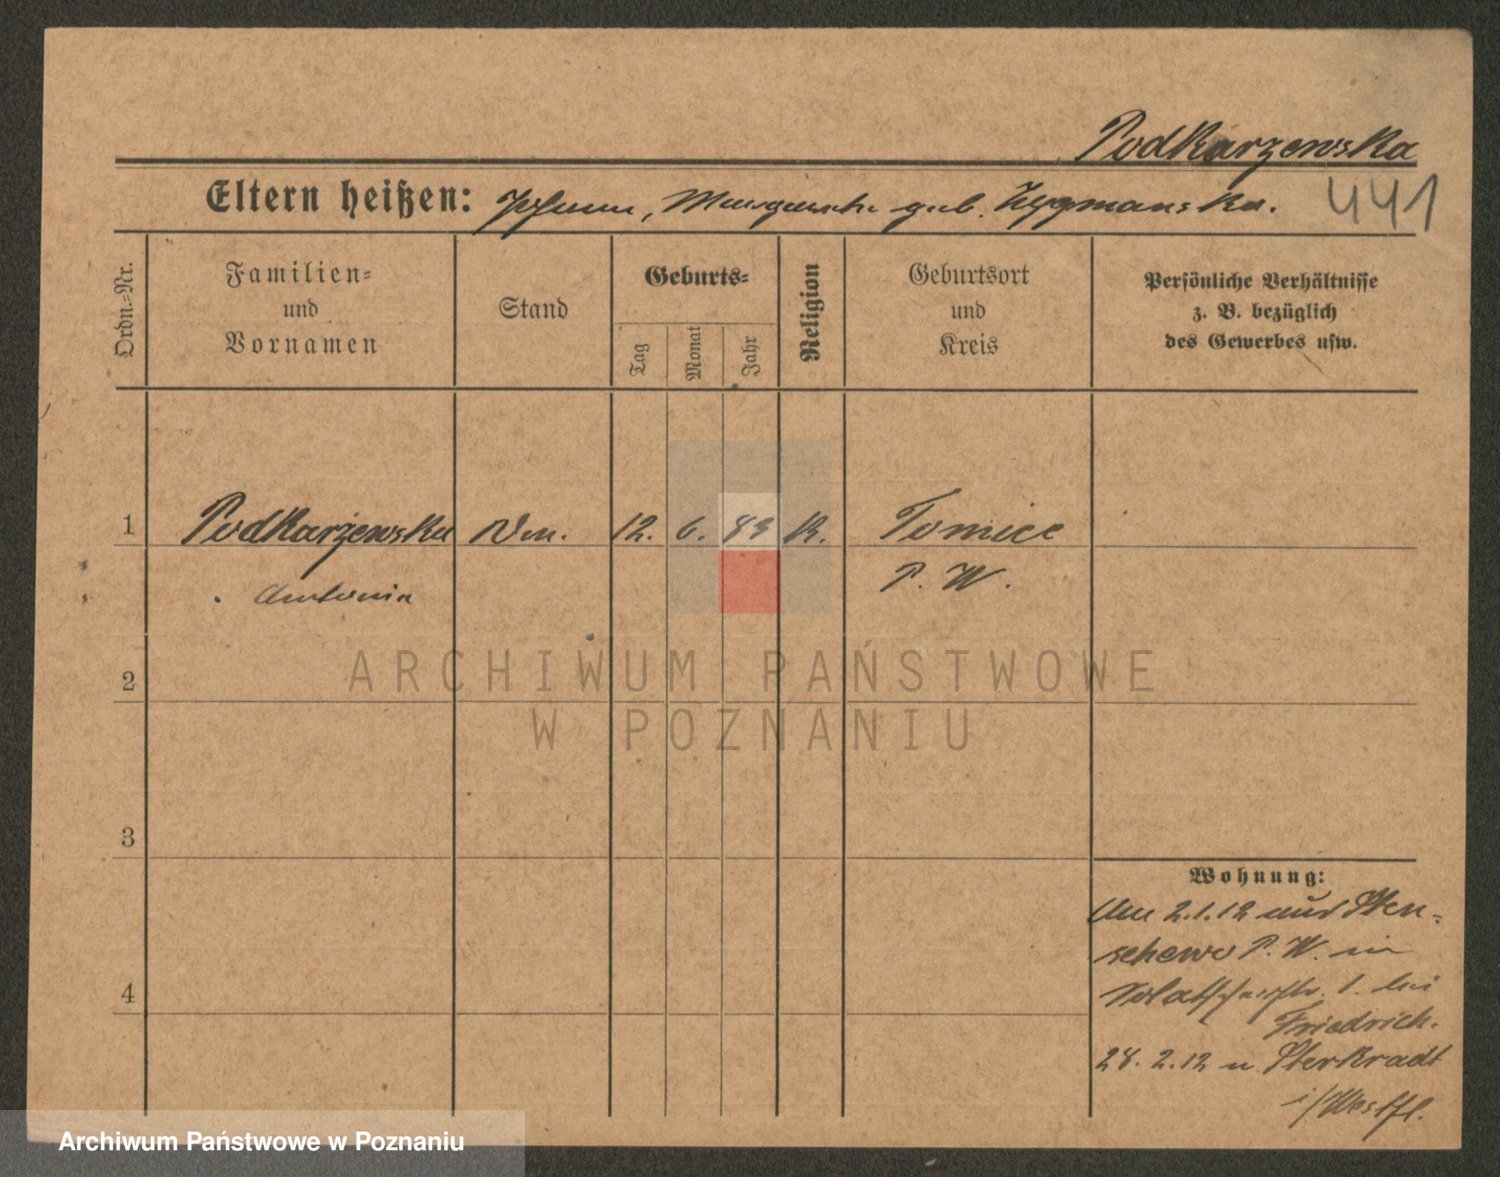 Podkarzewska
Eltern heißen: Johann, Margarethe geb. Zygmanska.
441
Ordn.=Nr.
Familien=
und
Vornamen
Stand
Geburts=
Tag
Monat
Jahr
Religion
Geburtsort
und
Kreis
Persönliche Verhältnisse
z. B. bezüglich
des Gewerbes usw.
1 Podkarzewska 12. 6. 83 K. Tomice
Antonia P. W.
2
3
4
Wohnung:
Am 2.1.12 aus Sten=
schewo P. W. in
1. bei
Friedrich.
28. 2.12 n Sterkradt
i/Westfl.
ARCHIWUM PAŃSTWOWE
W POZNANIU
Archiwum Państwowe w Poznaniu